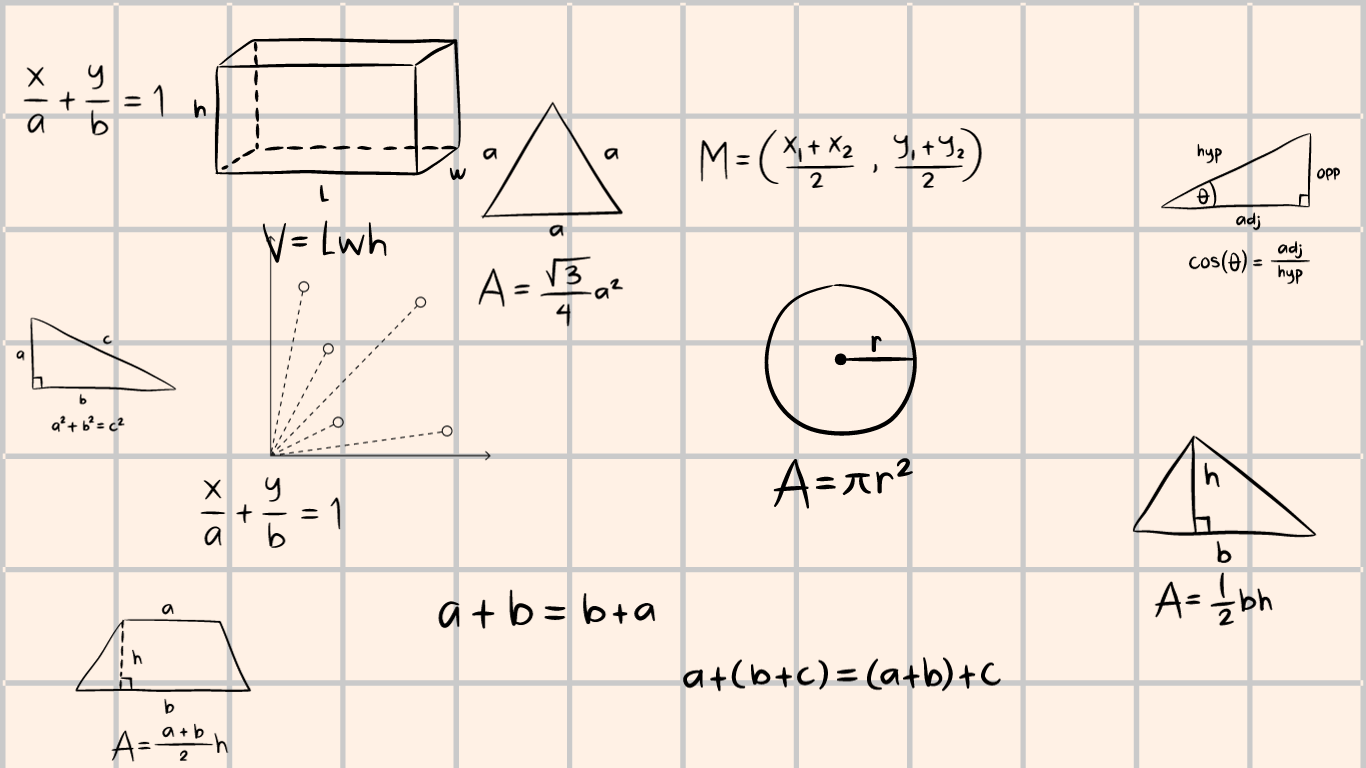 x/a + y/b = 1
h
L
w
V = Lwh
a
a
a
A = √3/4 a²
M = (x₁ + x₂/2 , y₁ + y₂/2)
hyp
opp
θ
adj
cos(θ) = adj/hyp
a
c
b
a² + b² = c²
r
A = πr²
x/a + y/b = 1
h
b
A = 1/2 bh
a + b = b + a
a + (b + c) = (a + b) + c
a
h
b
A = a + b/2 h